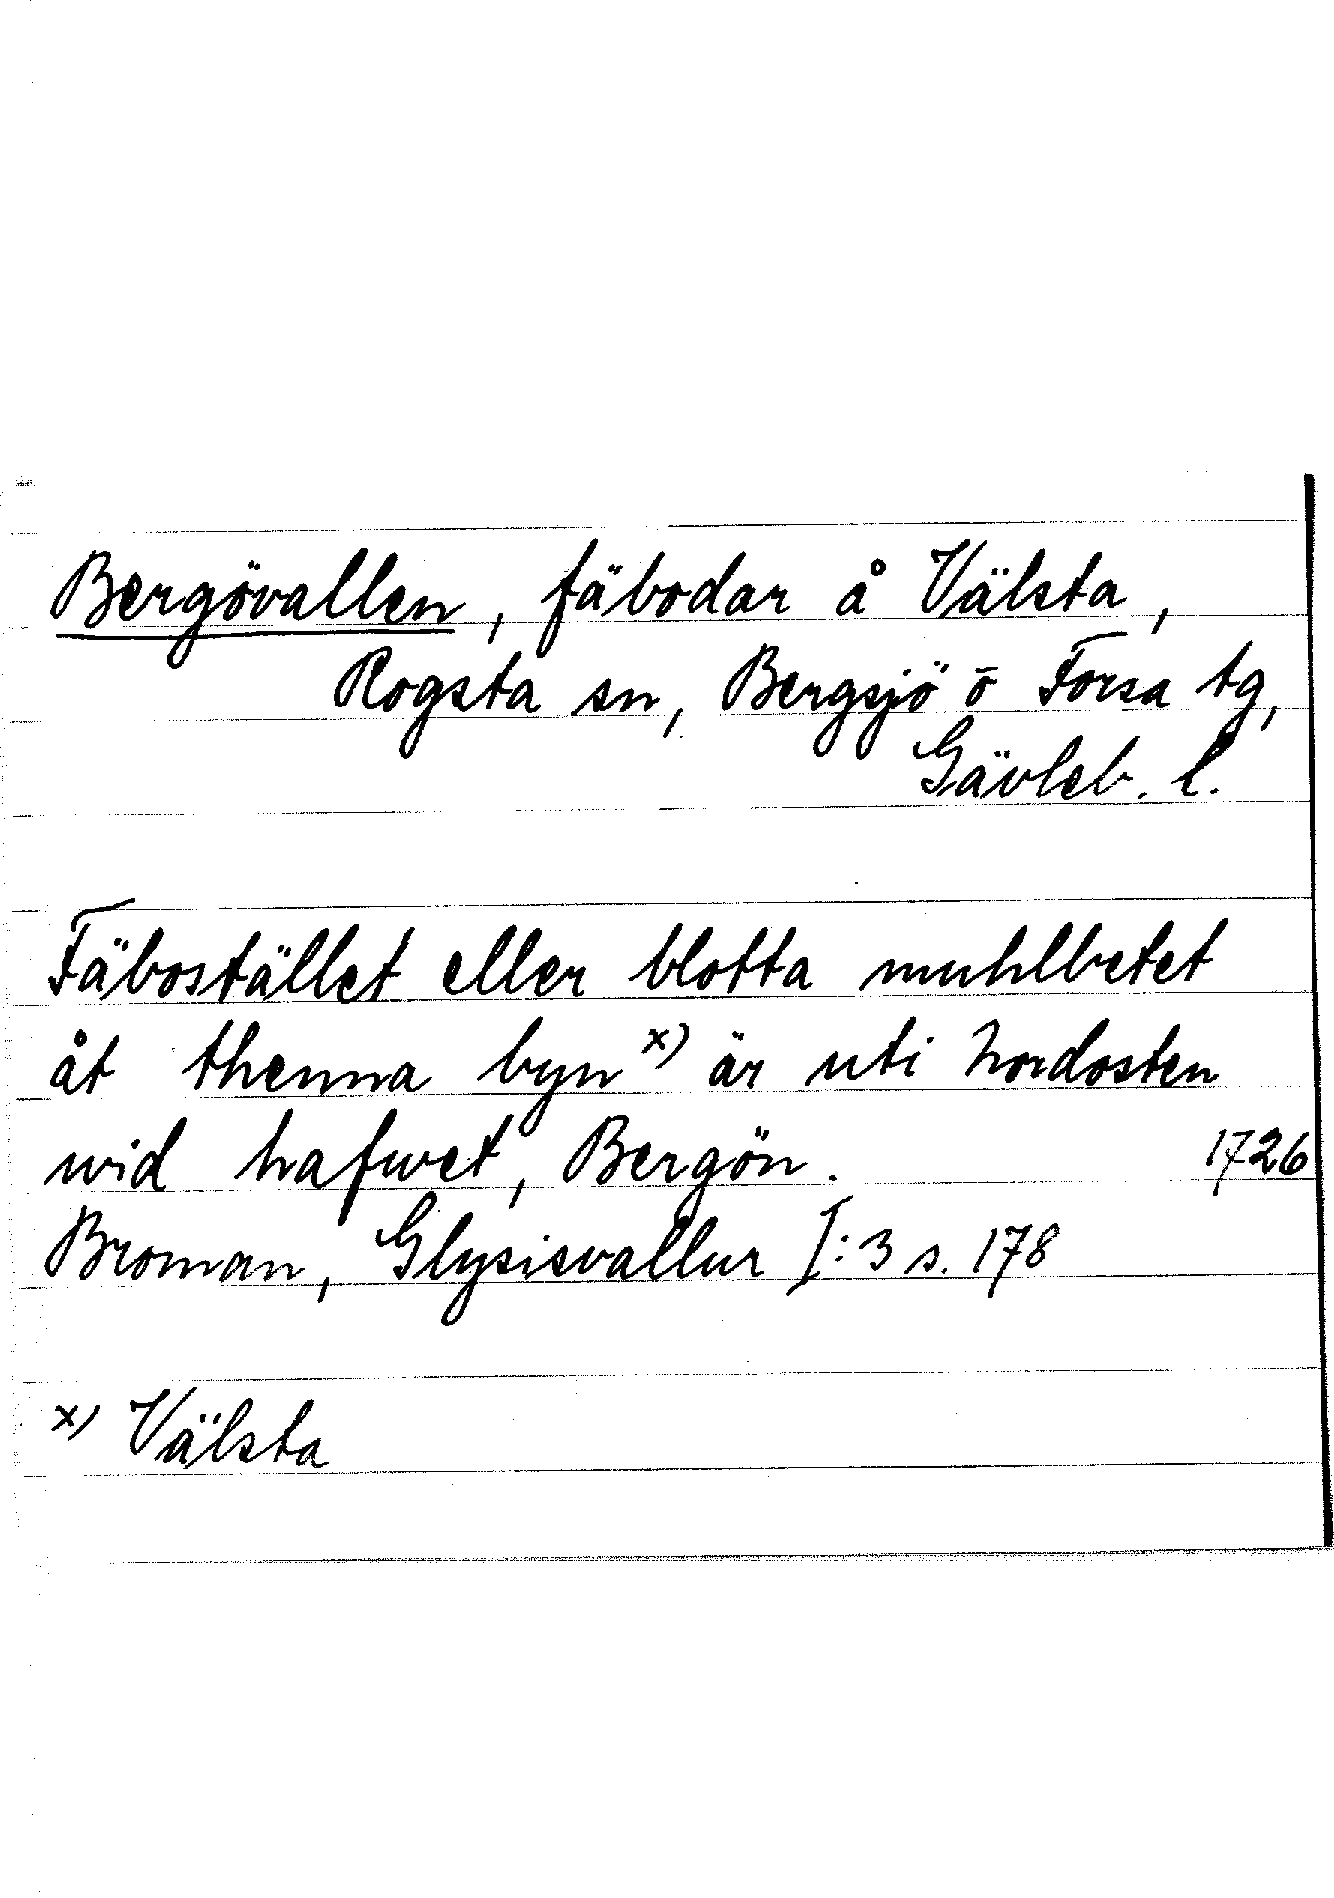 Bergövallen, fäbodar å Välsta,
Rogsta sn, Bergsjö o Forsa tg,
Gävleb. l.
Fäbostället eller blotta muhlbetet
åt thenna byn x) är uti Nordosten
wid hafwet, Bergön. 1726
Broman, Glysisvallur I:3 s. 178
x) Välsta